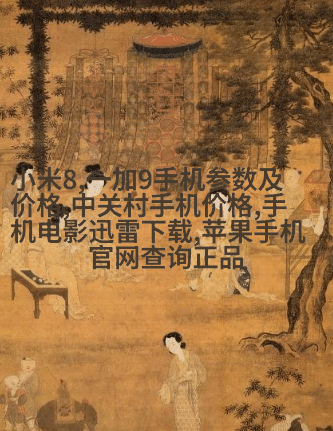 小米8,一加9手机参数及
价格,中关村手机价格,手
机电影迅雷下载,苹果手机
官网查询正品